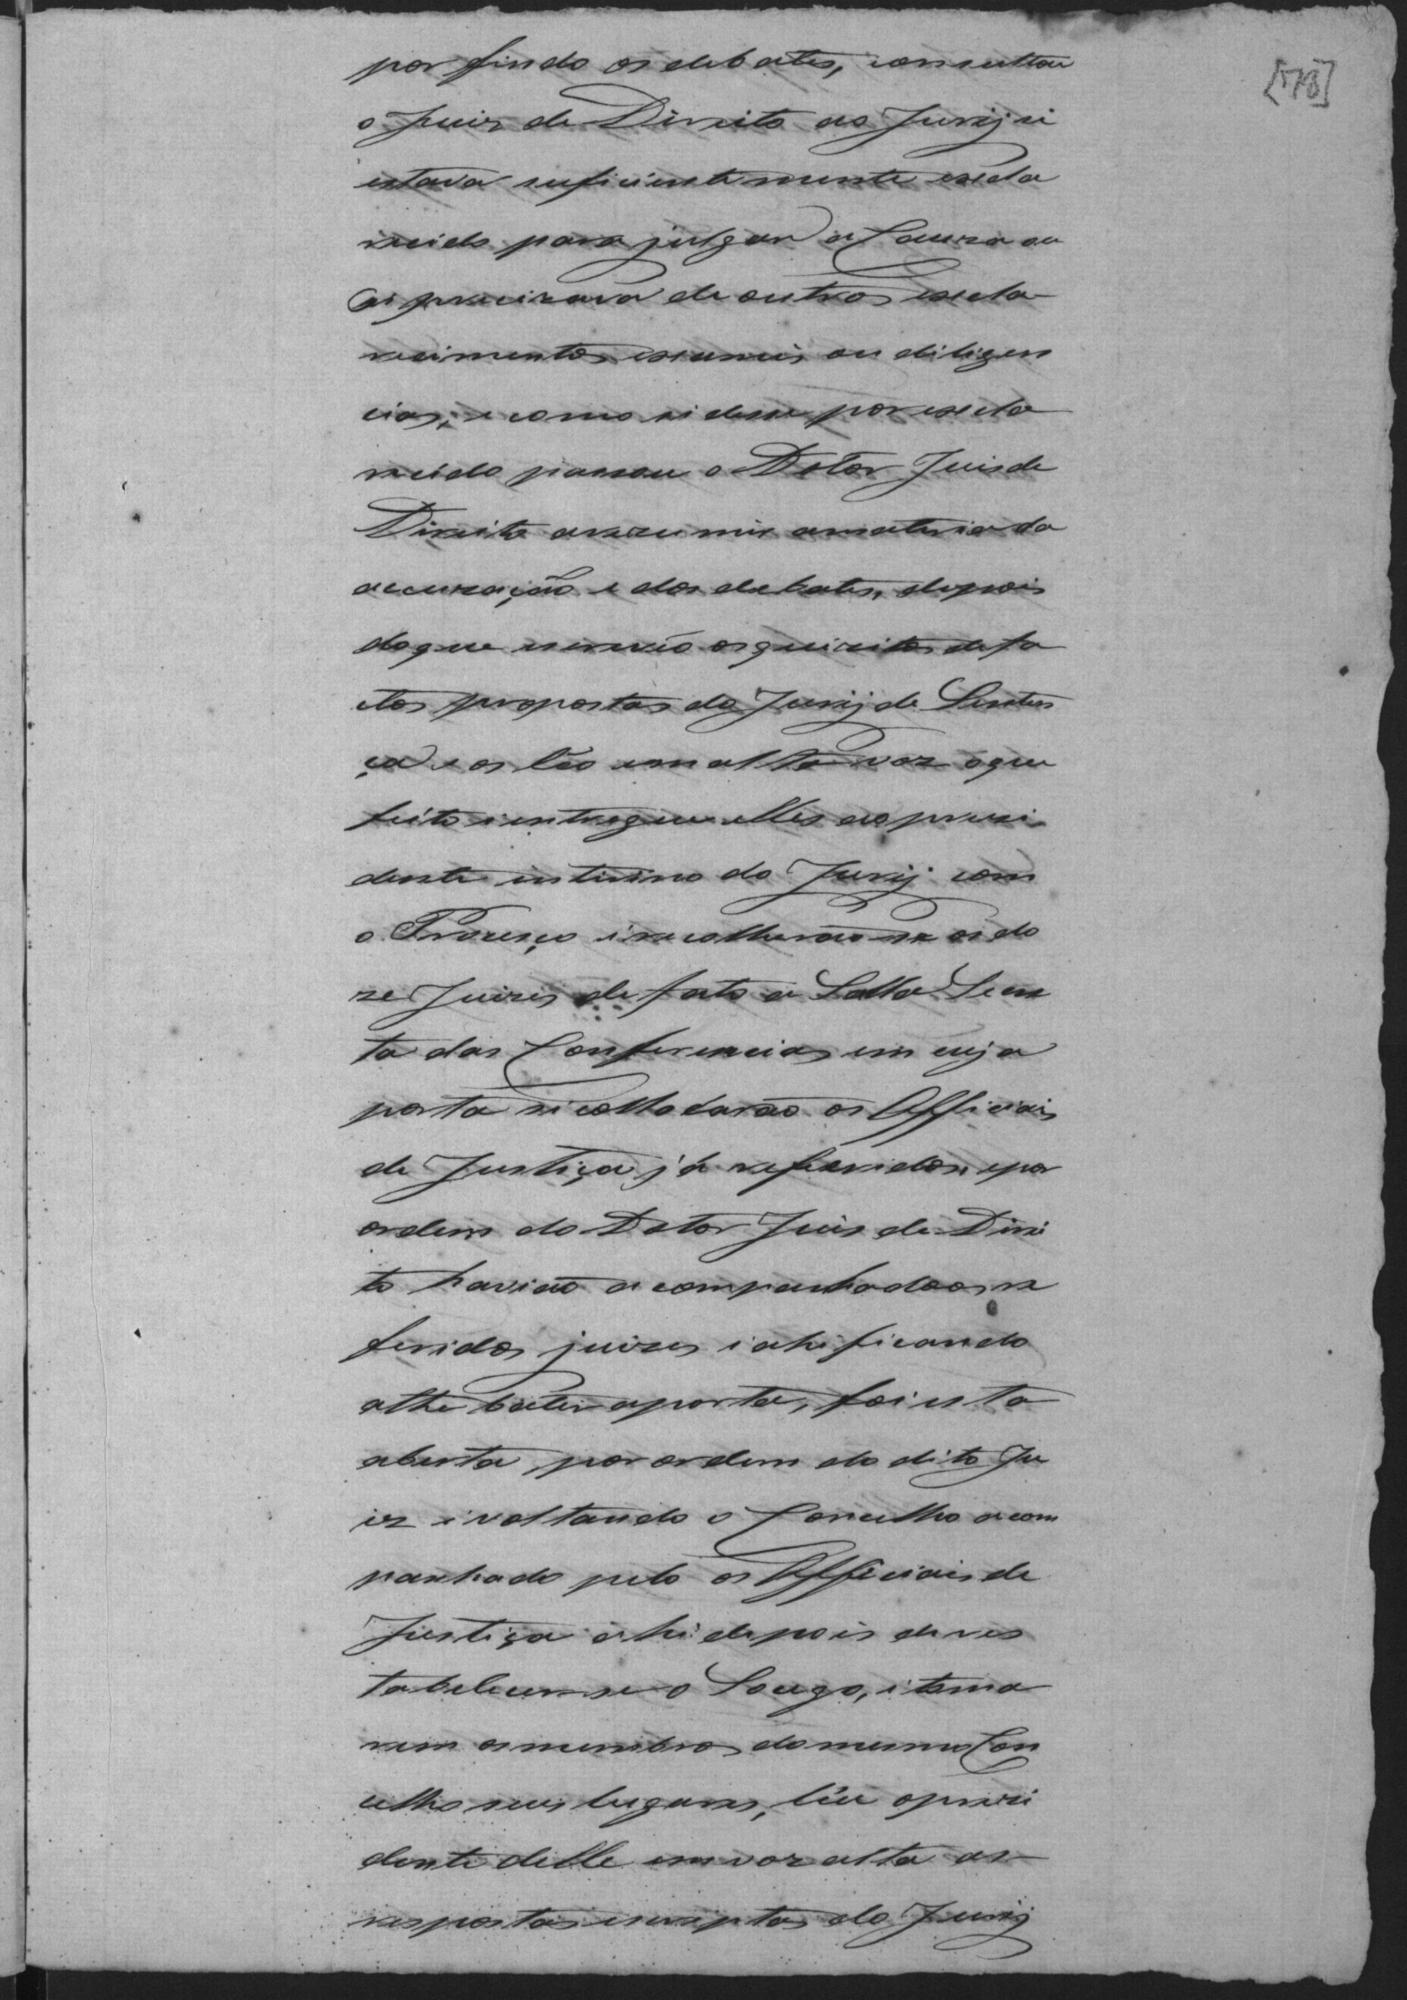 [78]
por findo os debates, consultou
o Juis de Direito ao Jurij si
estava suficientemente escla
recido para julgar a Cauza ou
si precizava de outros escla-
recimentos exames ou diligen
cias; e como si desse por escla
recido passou o Dotor Juis de
Direito arezumir amateria da
accuzação e dos debates, depois
doque escreveo osquizitos defa
ctos propostos do Jurij de Senten
ça e os lêo em alta voz oque
feito i entregue elles ao prezi
dente interino do Jurij com
o Proceço i recolherão se os do
ze Juizes de fato a Salla Secre
ta das Conferencias em cuja
porta si collocarão os Officiais
de Justiça já referidos, epor
ordem do Dotor Juis de Direi
to havião acompanhado os re
feridos juizes i ahi ficando
athe bater aporta, foi esta
aberta por ordem do dito Ju
iz i voltando o Concelho acom
panhado pelo os Officiais de
Justiça ahi depois de res
tabelecerse o Socego, i toma
rem osmembros do mesmo Con
celho seus lugares, lêu oprezi
dente delle emvoz alta as
respostas escriptas do Jurij